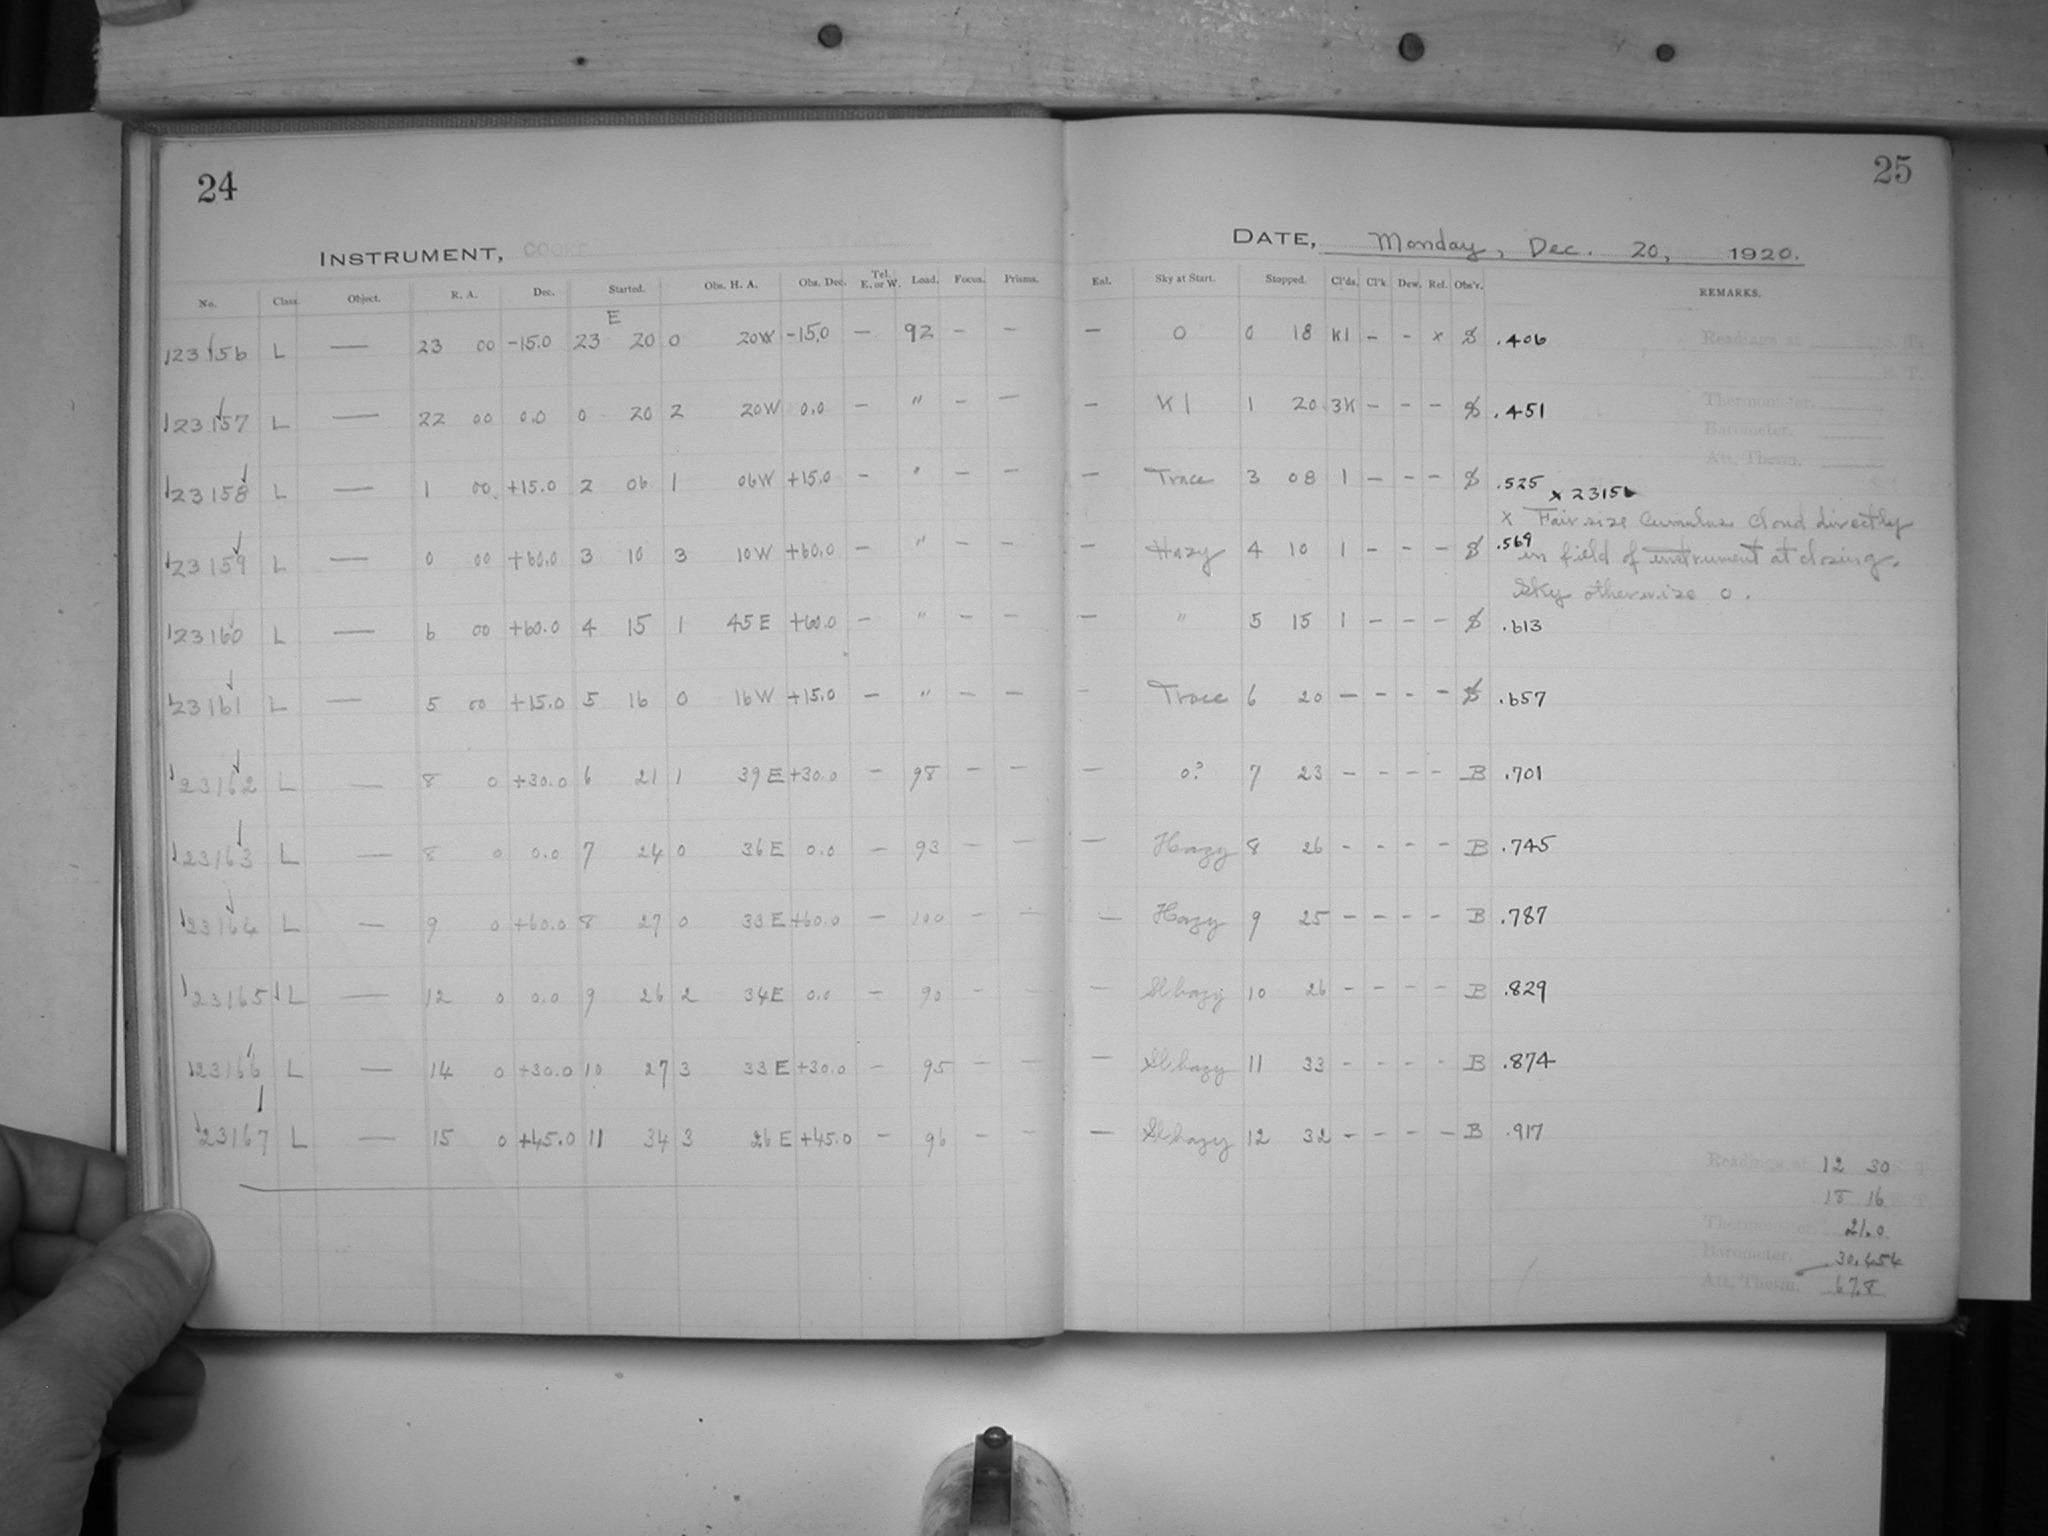 24
25
INSTRUMENT, COOKE
DATE, Monday, Dec. 20, 1920.
No. Class. Object. R. A. Dec. Started. Obs. H. A. Obs. Dec. Tel. E. or W. Load. Focus. Prisms. Eal. Sky at Start. Stopped. Cl'ds. Cl'k. Dew. Ref. Obs'r. REMARKS.
E
23156 L — 23 00 -15.0 23 20 0 20W -15.0 — 92 — — — 0 0 18 K1 - - x S .406
23157 L — 22 00 0.0 0 20 2 20W 0.0 — " — — — K1 1 20 3K - - - S .451
23158 L — 1 00 +15.0 2 06 1 06W +15.0 — " — — — Trace 3 08 1 - - - S .525
x 23156
x Fair size Cumulus Cloud directly
23159 L — 0 00 +60.0 3 10 3 10W +60.0 — " — — — Hazy 4 10 1 - - - S .569
in field of instrument at closing.
Sky otherwise 0.
23160 L — 6 00 +60.0 4 15 1 45E +60.0 — " — — — " 5 15 1 - - - S .613
23161 L — 5 00 +15.0 5 16 0 16W +15.0 — " — — - Trace 6 20 — - - - S .657
23162 L — 8 0 +30.0 6 21 1 39E +30.0 — 98 — — — 0? 7 23 - - - - B .701
23163 L — 8 0 0.0 7 24 0 36E 0.0 — 93 — — — Hazy 8 26 - - - - B .745
23164 L — 9 0 +60.0 8 27 0 33E +60.0 — 100 — — — Hazy 9 25 - - - - B .787
23165 L — 12 0 0.0 9 26 2 34E 0.0 — 90 — — — Sl hazy 10 26 - - - - B .829
23166 L — 14 0 +30.0 10 27 3 33E +30.0 — 95 — — — Sl hazy 11 33 - - - - B .874
23167 L — 15 0 +45.0 11 34 3 26E +45.0 — 96 — — — Sl hazy 12 32 - - - - B .917
Readings at S. T.
E. T.
Thermometer.
Barometer.
Att. Therm.
Readings at 12 30 S. T.
18 16 E. T.
Thermometer. 21.0
Barometer. 30.454
Att. Therm. 67.8